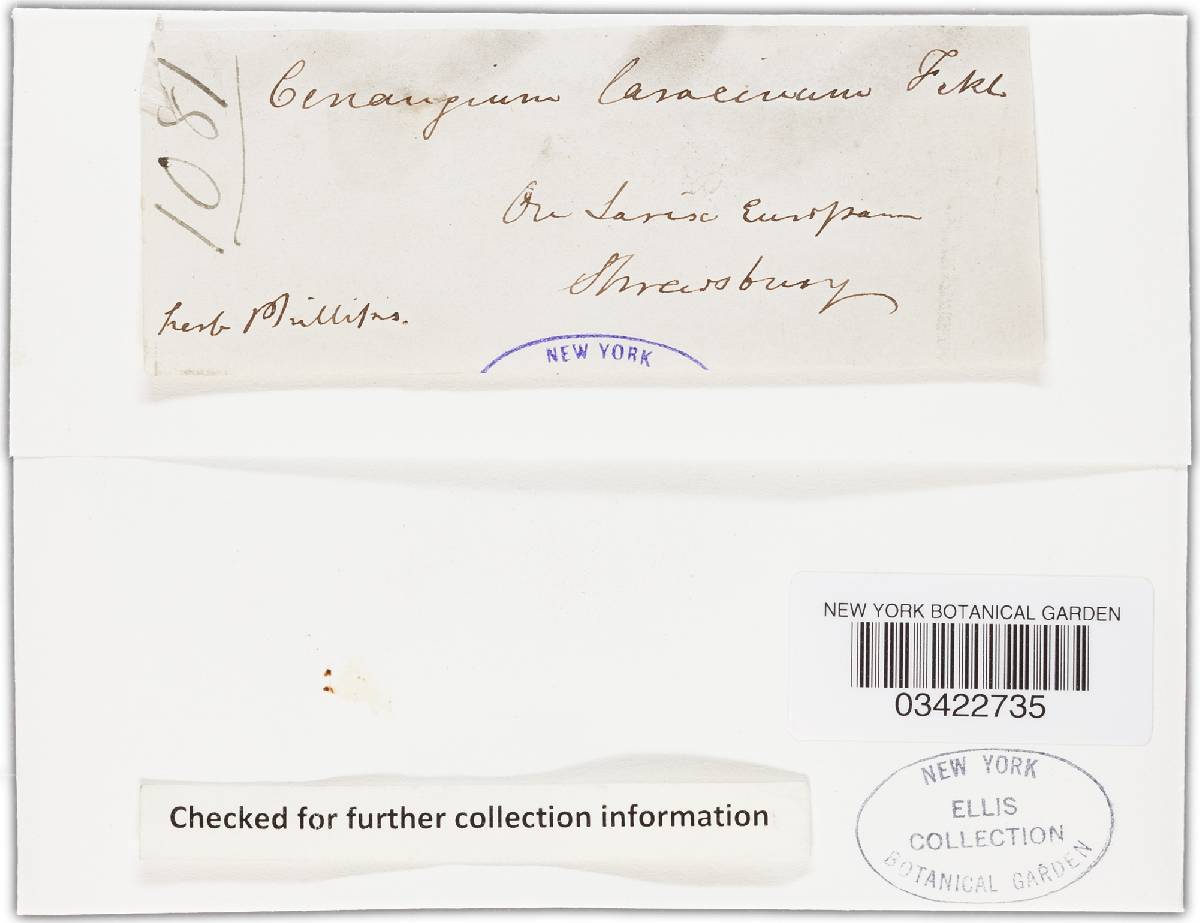 1081
Cenangium Laracinum Fckl.
On Larix Europaea
Shrewsbury
herb Phillips.
NEW YORK
NEW YORK BOTANICAL GARDEN
03422735
Checked for further collection information
NEW YORK
ELLIS
COLLECTION
BOTANICAL GARDEN